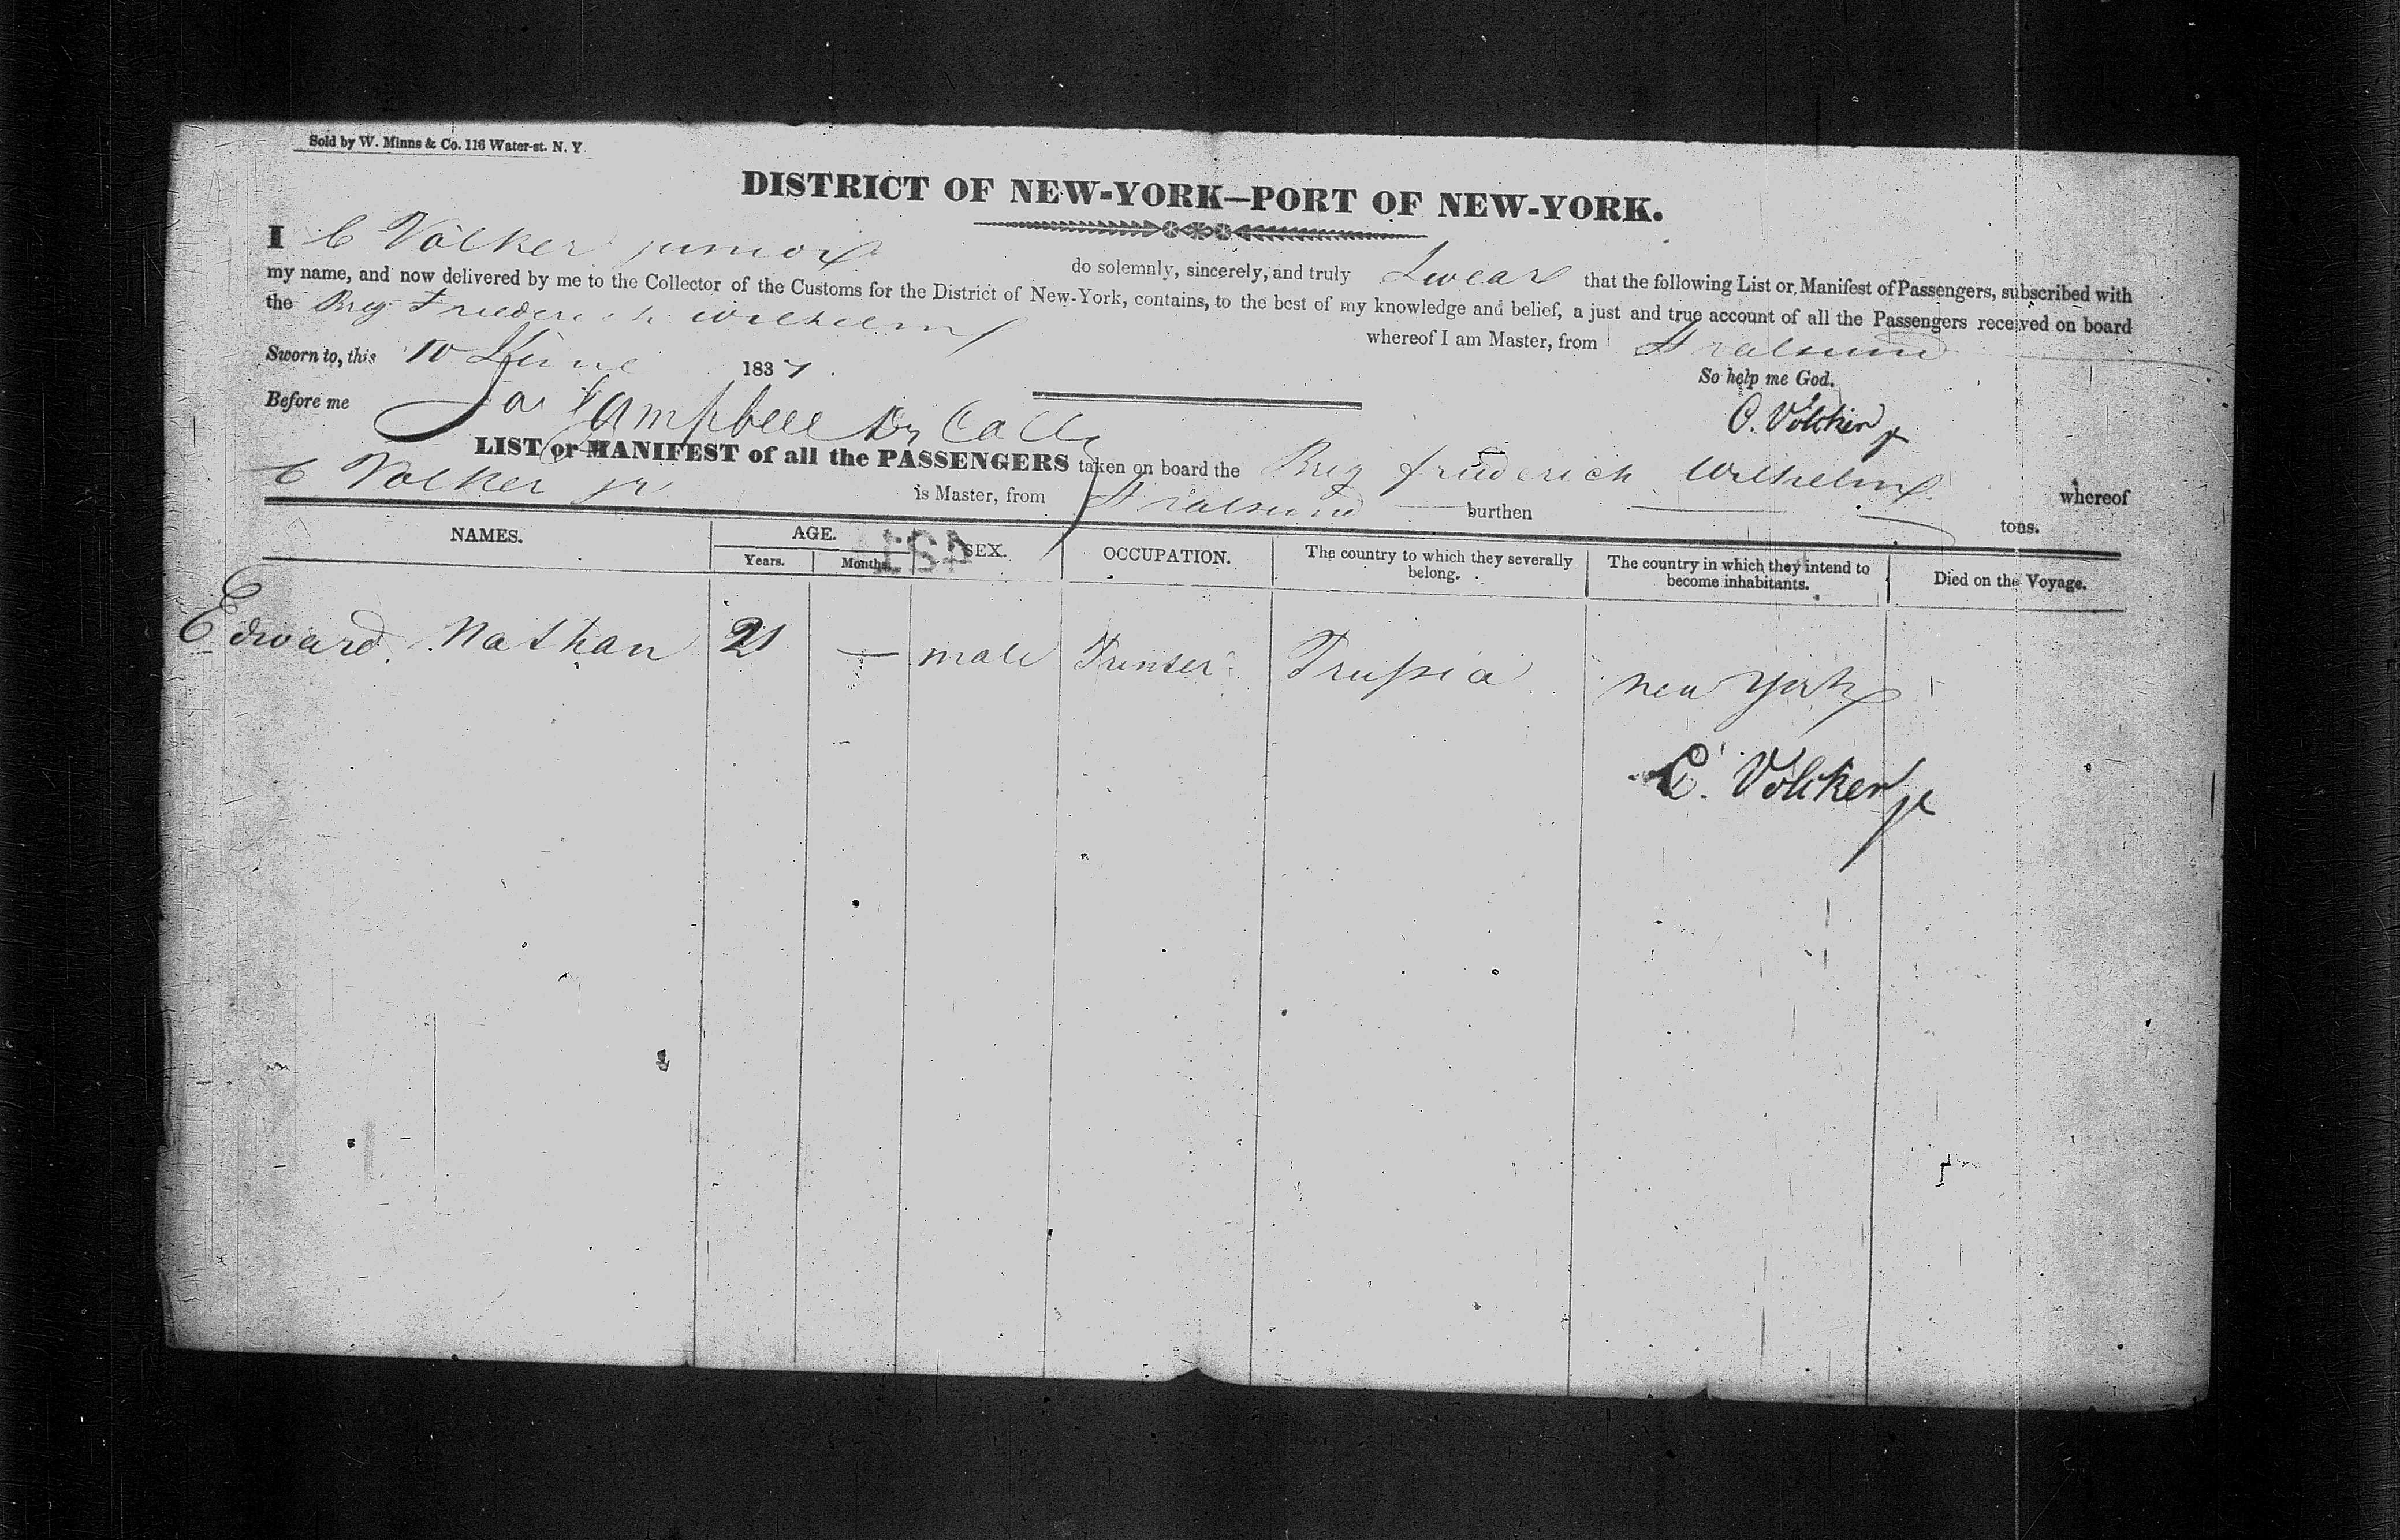 Sold by W. Minns & Co. 116 Water-st. N. Y.
DISTRICT OF NEW-YORK—PORT OF NEW-YORK.
I C Völker junior do solemnly, sincerely, and truly Swear that the following List or Manifest of Passengers, subscribed with
my name, and now delivered by me to the Collector of the Customs for the District of New-York, contains, to the best of my knowledge and belief, a just and true account of all the Passengers received on board
the Brig Friederich Wilhelm whereof I am Master, from Stralsund
Sworn to, this 10 June 1837. So help me God.
Before me Jas Campbell Dy Coll C. Völcker jr
LIST or MANIFEST of all the PASSENGERS taken on board the Brig friederich Wilhelm whereof
C Volker jr is Master, from Stralsund burthen tons.
NAMES. AGE. SEX. OCCUPATION. The country to which they severally belong. The country in which they intend to become inhabitants. Died on the Voyage.
Years. Months.
421
Edward Nathan 21 — male Printer Prussia new York
C. Völcker jr